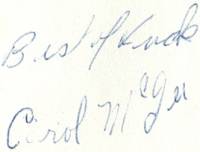 Best of Luck
Carol McGee